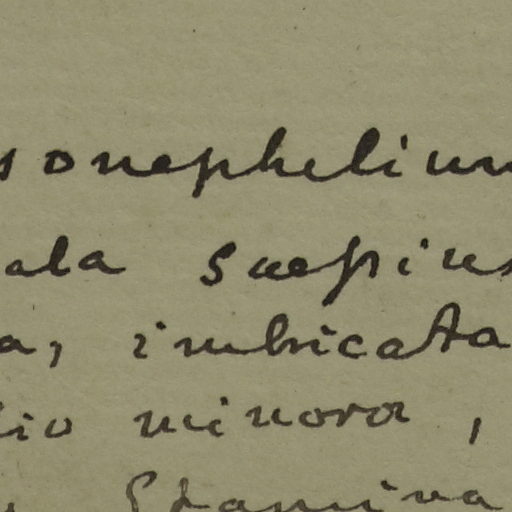 sonephelium
ala saepius
a, imbricata
io minora,
Stamina